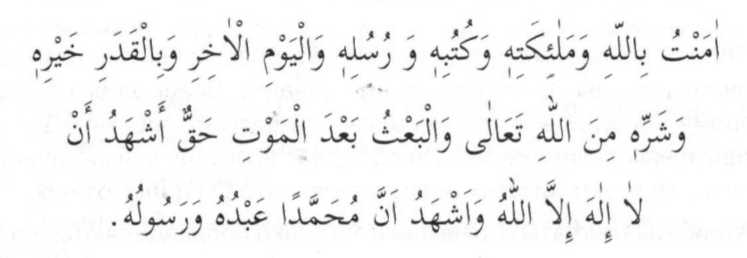 اٰمَنْتُ بِاللّٰهِ وَمَلٰئِكَتِهٖ وَكُتُبِهٖ وَ رُسُلِهٖ وَالْيَوْمِ الْاٰخِرِ وَبِالْقَدَرِ خَيْرِهٖ
وَشَرِّهٖ مِنَ اللّٰهِ تَعَالٰى وَالْبَعْثُ بَعْدَ الْمَوْتِ حَقٌّ أَشْهَدُ أَنْ
لاٰ إِلٰهَ إِلَّا اللّٰهُ وَاَشْهَدُ اَنَّ مُحَمَّدًا عَبْدُهُ وَرَسُولُهُ.